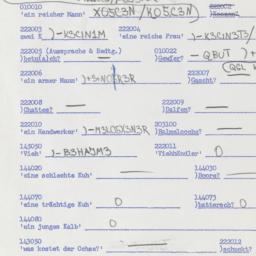 010010 222002
'ein reicher Mann' XO5C3N/KO5C3N)
222003 222004
zwei R )-K3C1N1M 'eine reiche Frau' )-K3C1N3T3/
222005 (Aussprache & Bedtg.) 010022 -QBUT
)betu(alch? )Gewder?
222006 222007
'ein armer Mann' )+3+NOER3R )Gascht?
222008 222009
)Quattes? )Dalfen?
222010 203100
'ein Handwerker' )-M3LO5X3N3R )Balmalocche?
143050 222011
'Vieh' )-B3HAJM3 'Viehhändler' O
144020 144030
'eine schlechte Kuh' )Boora?
144070 144073
'eine trächtige Kuh' O )hatterach? O
144080
'ein junges Kalb' O
143050 222012
'was kostet der Ochse?' )schuckt?